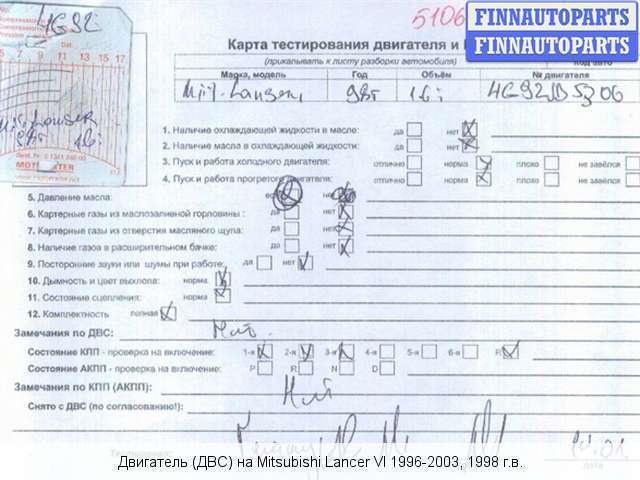 4G92
5106
FINNAUTOPARTS
FINNAUTOPARTS
Карта тестирования двигателя и
(прикалывать к листу разборки автомобиля)
Марка, модель Год Объём № двигателя
Mit. Lanser, 98г 1.6i 4G92
5 7 9 11 13 15 17
Mit. Lanser
98г 1.6i
1. Наличие охлаждающей жидкости в масле: да нет
2. Наличие масла в охлаждающей жидкости: да нет
3. Пуск и работа холодного двигателя: отлично норма плохо не завёлся
4. Пуск и работа прогретого двигателя: отлично норма плохо не завёлся
5. Давление масла:
6. Картерные газы из маслозаливной горловины : да нет
7. Картерные газы из отверстия масляного щупа: да нет
8. Наличие газов в расширительном бачке: да нет
9. Посторонние звуки или шумы при работе: да нет
10. Дымность и цвет выхлопа: норма
11. Состояние сцепления: норма
12. Комплектность полная
Замечания по ДВС:
Состояние КПП - проверка на включение: 1-я 2-я 3-я 4-я 5-я 6-я R
Состояние АКПП - проверка на включение: P R N D
Замечания по КПП (АКПП):
Снято с ДВС (по согласованию!):
дата
Двигатель (ДВС) на Mitsubishi Lancer VI 1996-2003, 1998 г.в.